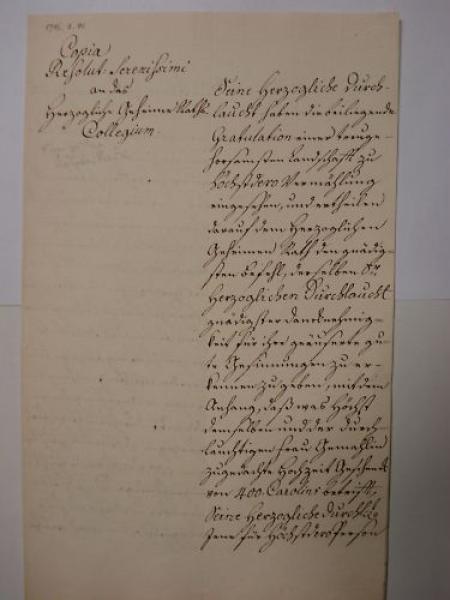 Copia
Resolut. Serenissimi
an das
Herzogliche Geheime Raths
Collegium.
Seine Herzogliche Durch-
laucht haben die beiliegende
Gratulation einer treuge-
horsamsten Landschafft zu
Höchstdero Vermählung
eingesehen, und ertheilen
darauf dem Herzoglichen
Geheimen Rath den gnädig-
sten Befehl, derselben Sr
Herzoglichen Durchlaucht
gnädigster Dancknehmig-
keit für ihre geäuserte gu-
te Gesinnungen zu er-
kennen zu geben, mit dem
Anhang, daß was Höchst
demselben und der Durch-
lauchtigen Frau Gemahlin
zugedachte Hochzeit Geschenk
von 400. Carolins betrifft,
Seine Herzogliche Durchl.
jene für Höchstdero Person